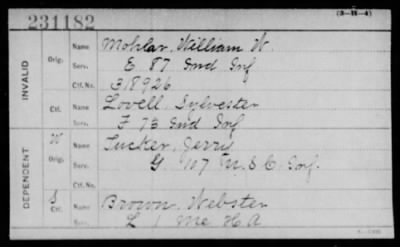 231182
(3-H-4)
INVALID
Orig. Name Mohlar, William W.
Serv. E. 87 Ind Inf
Ctf. No. 318926
Ctf. Name Lovell, Sylvester
Serv. F 73 Ind Inf
DEPENDENT
W Orig. Name Tucker, Jerry
Serv. G. 107 U.S.C. Inf.
Ctf. No.
Ctf. Name Brown, Webster
Serv. L 1 Me H A